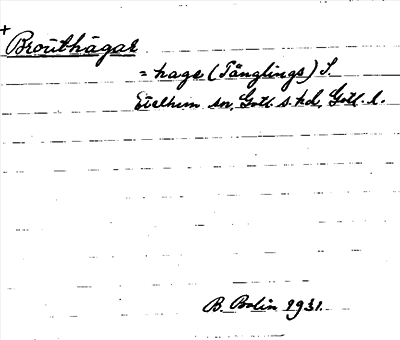 +
Brouthagar
= hage (Tänglings) S.
Etelhem sn, Gotl. s. hd, Gotl. l.
B. Bolin 1931.